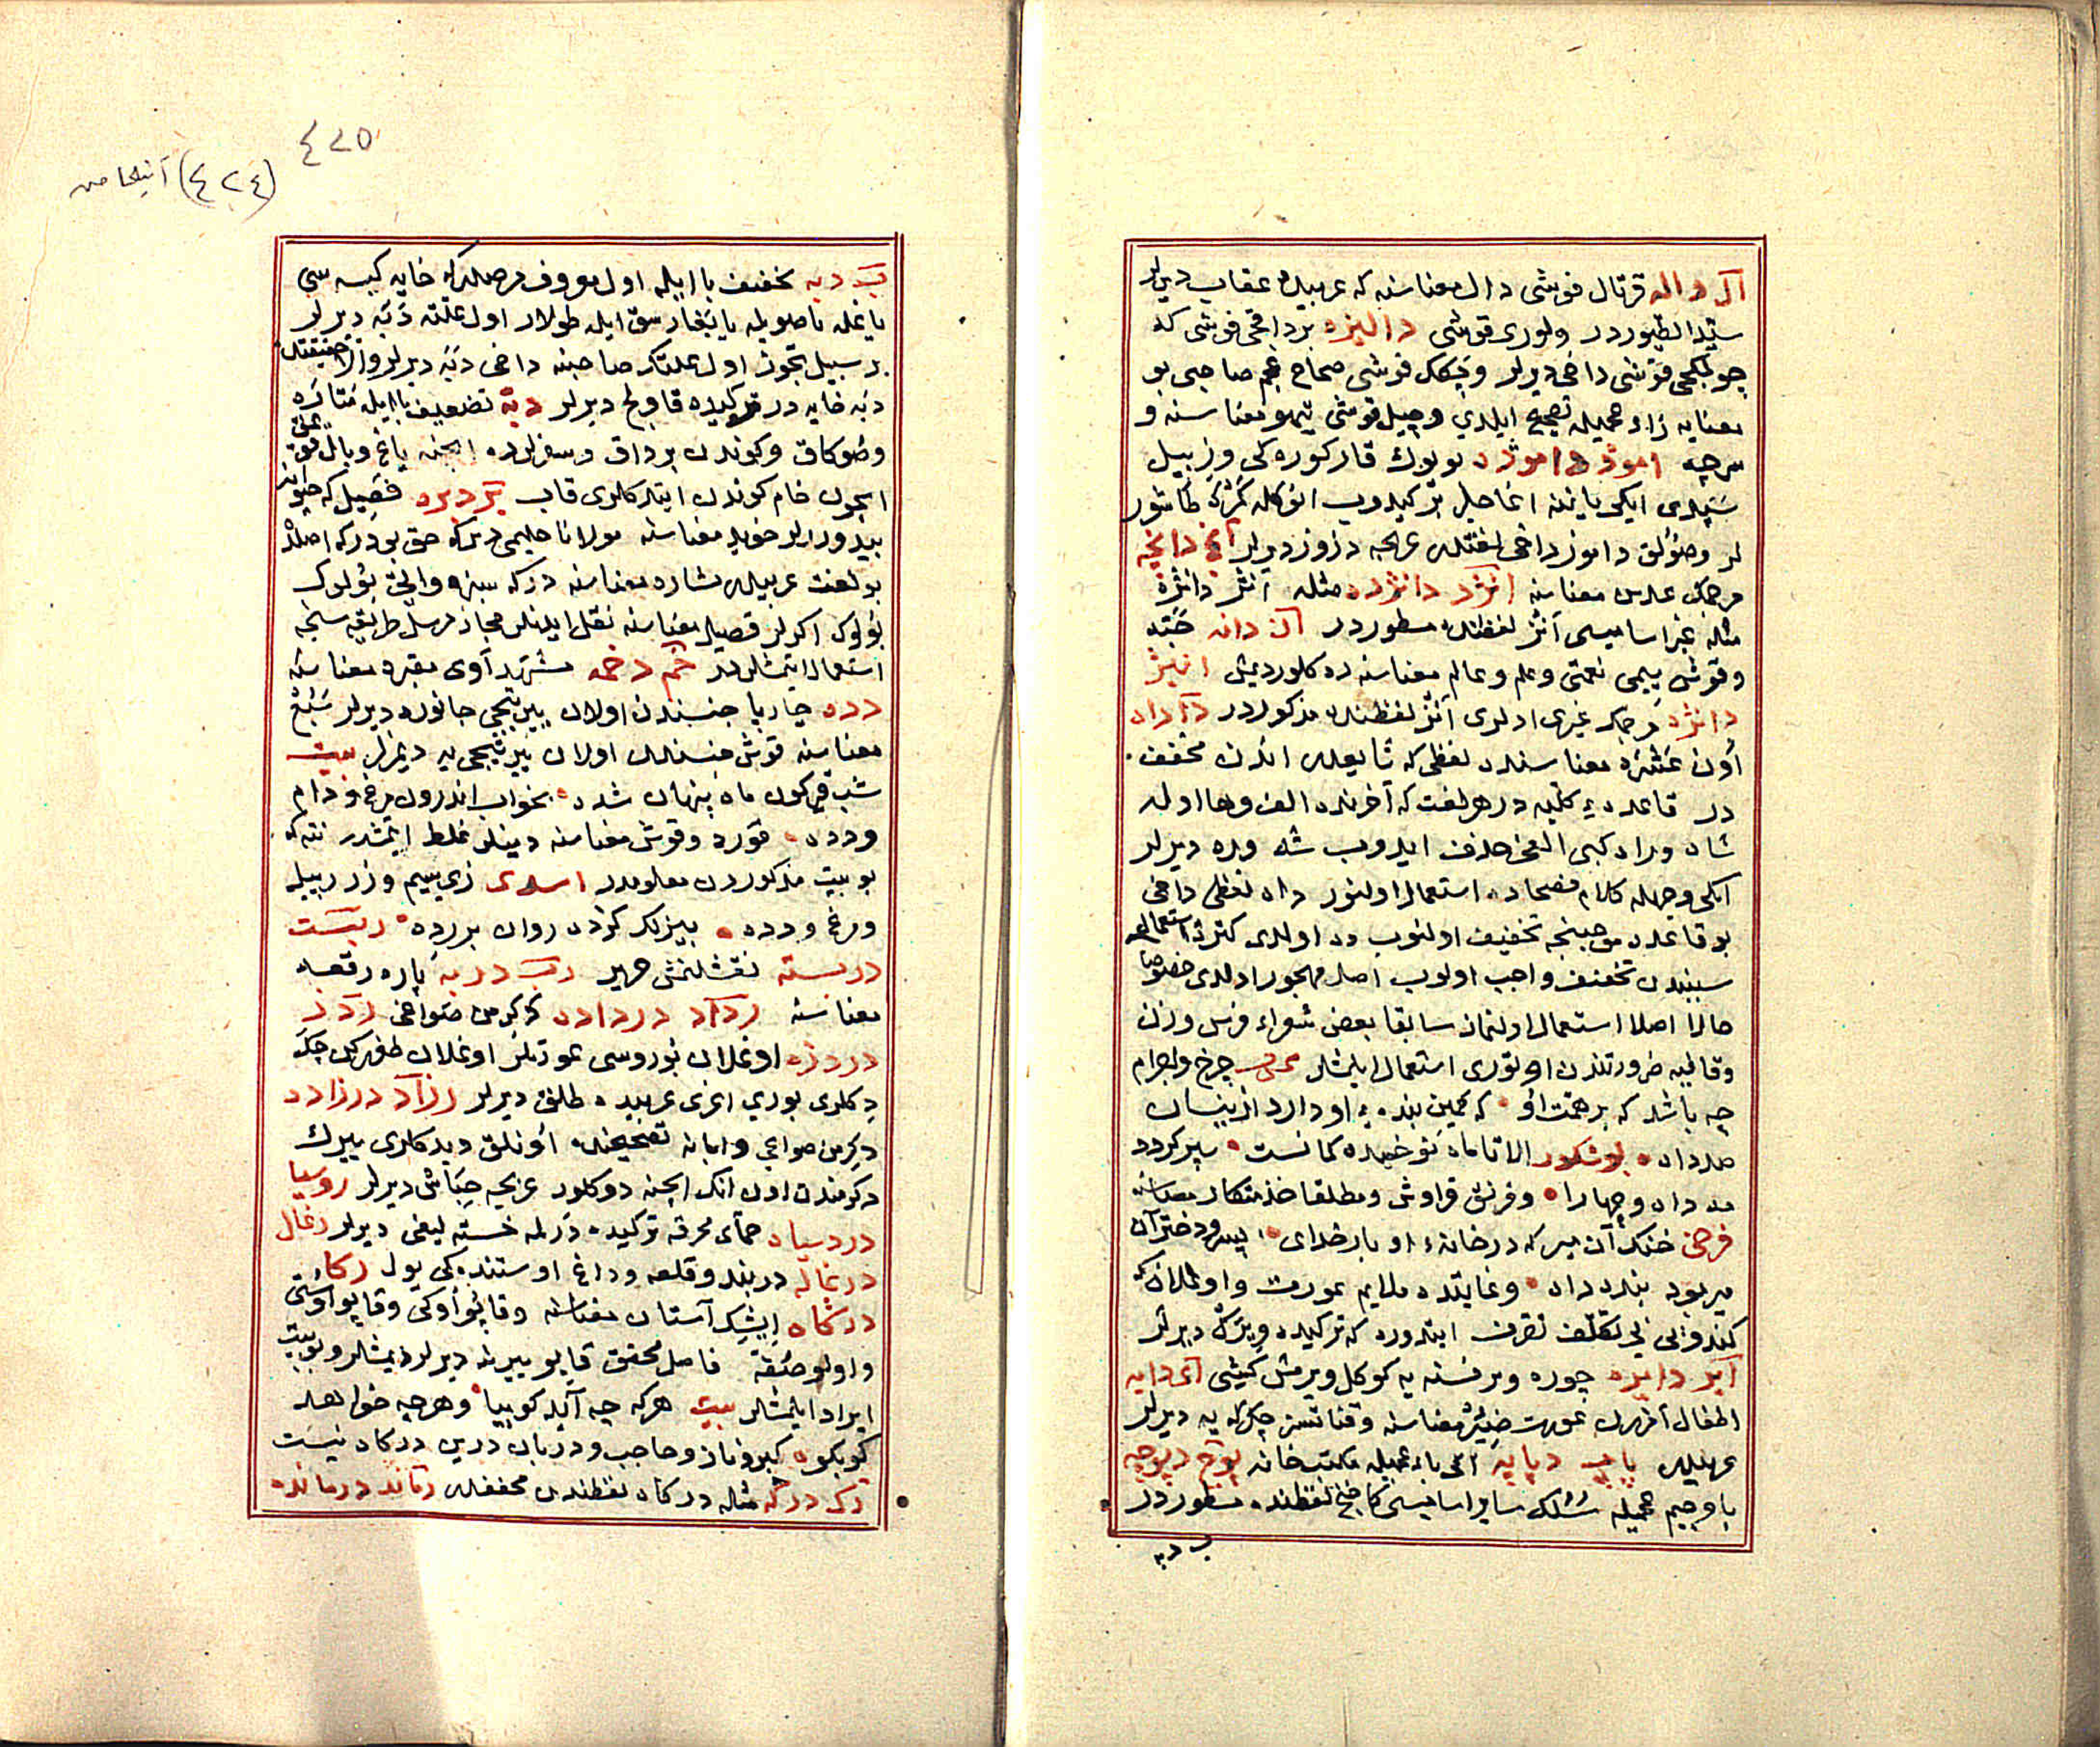 آل داله قرتال قوشی دال معناسنه که عربیده عقاب دیرلر
سیّد الطیوردر ولوری قوشی دالیزه بر داخی قوشی که
چولمکجی قوشی داخی دیرلر وچکک قوشی صحاح عجم صاحبی بو
معنایه زاء عجمیله تصحیح ایلدی وچیل قوشی تیهو معناسنه و
سرچه اموز داموزد بویوک قار کوره کی وزنبیل
سپدی ایکی یاننه اغاجلر برکیدوب انوکله کمره طاشور
لر وصولق داموز داخی لغتدر عربجه دزوز دیرلر آنج دانجه
مرجمک عدس معناسنه انژد دانژده مثله انژ دانژه
مثله غیر اسامیسی آنژ لفظنده مسطوردر آن دانه حبّه
وقوش ییمی نعمتی وعلم وعالم معناسنه ده کلور دیمش انیژ
دانژه مرجمک غیری ادلری آنژ لفظنده مذکوردر دآ داه
اون عشره معناسنه ده لفظی که ثا یعدر اندن مخفف
در قاعدهٔ کلیه در هر لغت که آخرنده الف وها اوله
شاه وراه کبی الفی حذف ایدوب شه وره دیرلر
ایکی وجهله کلام فصحاده استعمال اولنور داه لفظی داخی
بو قاعده موجبنجه تخفیف اولنوب ده اولدی کثرة استعمال
سببندن تخفیف واجب اولوب اصل مهجور اولدی خصوصا
حالا اصلا استعمال اولنماز سابقا بعض شعراء فرس وزن
وقافیه ضرورتندن اوتوری استعمال ایلمشلر چرخ واجرام
چه باشد که بر همت او که کمین بندهٔ او دارد ازینسان
صد داه بوشکور الا تا ماه نو خمیده کمانست سپر گردد
مه داه وچهارا وقرنق قراوش ومطلقا خذمتکار معناسنه
فرخی خنک آن میر که در خانهٔ او بار خدای پسر ودختر آن
میر بود بنده داه وغایتده ملایم عورت واوغلان که
کندوایی بی تکلف تصرف ایتدوره که ترکیده ویرک دیرلر
آیر دایره چوره وبر نسنه یه کوکل ویرمش کیشی آی دایه
اطفال امزرن عورت ضئر معناسنه وقناتسز چکرکه یه دیرلر
عربیدر پاپ دپاپه ایکی باء عجمیله مکتبخانه پوچ دپوچه
با وجیم عجمیله سُلک سایر اسامیسی کاخج لفظنده مسطوردر
ب دبه
٤٢٥
(٤٢٤)
ب دبه تخفیف با ایله اول معروف مرضدر که خایه کیسه سی
یا غله یا صویله یا بخار سق ایله طولار اول علته دبه دیرلر
بر سبیل تجوز اول علتک صاحبنه داخی دبه دیرلر والا حقیقتده
دبه خایه در ترکیده قاولج دیرلر دبّه تضعیف با ایله متاره
وصوکاق وکوندن برداق وسفرلرده ایچنه یاغ وبال قومق
ایچون خام کوندن ایتدکلری قاب بر دبره فصیل که حیوانه
ییدورلر خوید معناسنه مولانا حلیمی دیرکه حق بودرکه اصلده
بو لغت عربیدر شاره معناسنه درکه سبزه وایچی بولوک
بولوک اکرلر قصیل معناسنه نقل ایدنلر مجاز مرسل طریقیه سنجه
استعمال ایتمشلردر خم دخمه مشهد آوی مقبره معناسنه
دده چارپا جنسندن اولان ییرتجی جانوره دیرلر سبع
معناسنه قوش جنسندن اولان ییرتیجی یه دیمزلر بیت
شب قیرگون ماه پنهان شده بخواب اندرون مرغ ودام
ودده قورد وقوش معناسنه دینلر غلط ایتمشدر نته که
بو بیت مذکوردن معلومدر اسدی زی سیم وزر پیله
ومرغ ودده بییزک کرده روان بر رده ربست
دربسته نقشلنمش حریر رب دربه پاره رقعه
معناسنه رداد درداده دکرمن صواغی ردر
دردزه اوغلان بوروسی عورتلر اوغلان طوغررکن چکه
دکلری بوری اغری عربیده طلق دیرلر رزاد درزاده
دکرمن صواغی وامانه تصحیحنده اونلق دیدکلری ییرک
دکرمندن اون انک ایچنه دوکلور عربجه جبّاش دیرلر روسیا
دردسیاه حمّای محرقه ترکیده درلمه خسته لیغی دیرلر رغال
درغاله دربند وقلعه وداغ اوستنده کی یول رکا
درگاه ایشک آستان معناسنه وقاپو اوکی وقاپو اوستی
واولو صفّه فاضل محقق قاپو ییرینه دیرلر دیمشلر وبو بیت
ایراد ایلمشلر بیت هرکه چه آید کو بیا وهرچه خواهد
کو بکو کبر وناز وحاجب ودربان درین درکاه نیست
رک درکه مثله درکاه لفظندن مخففدر رماند درمانده